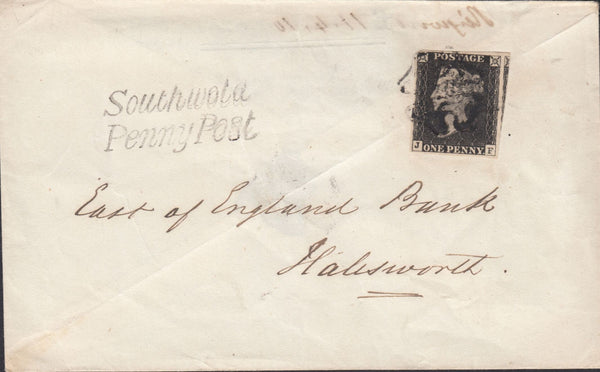 Southwold
Penny Post
POSTAGE
J F
ONE PENNY
East of England Bank
Halesworth.